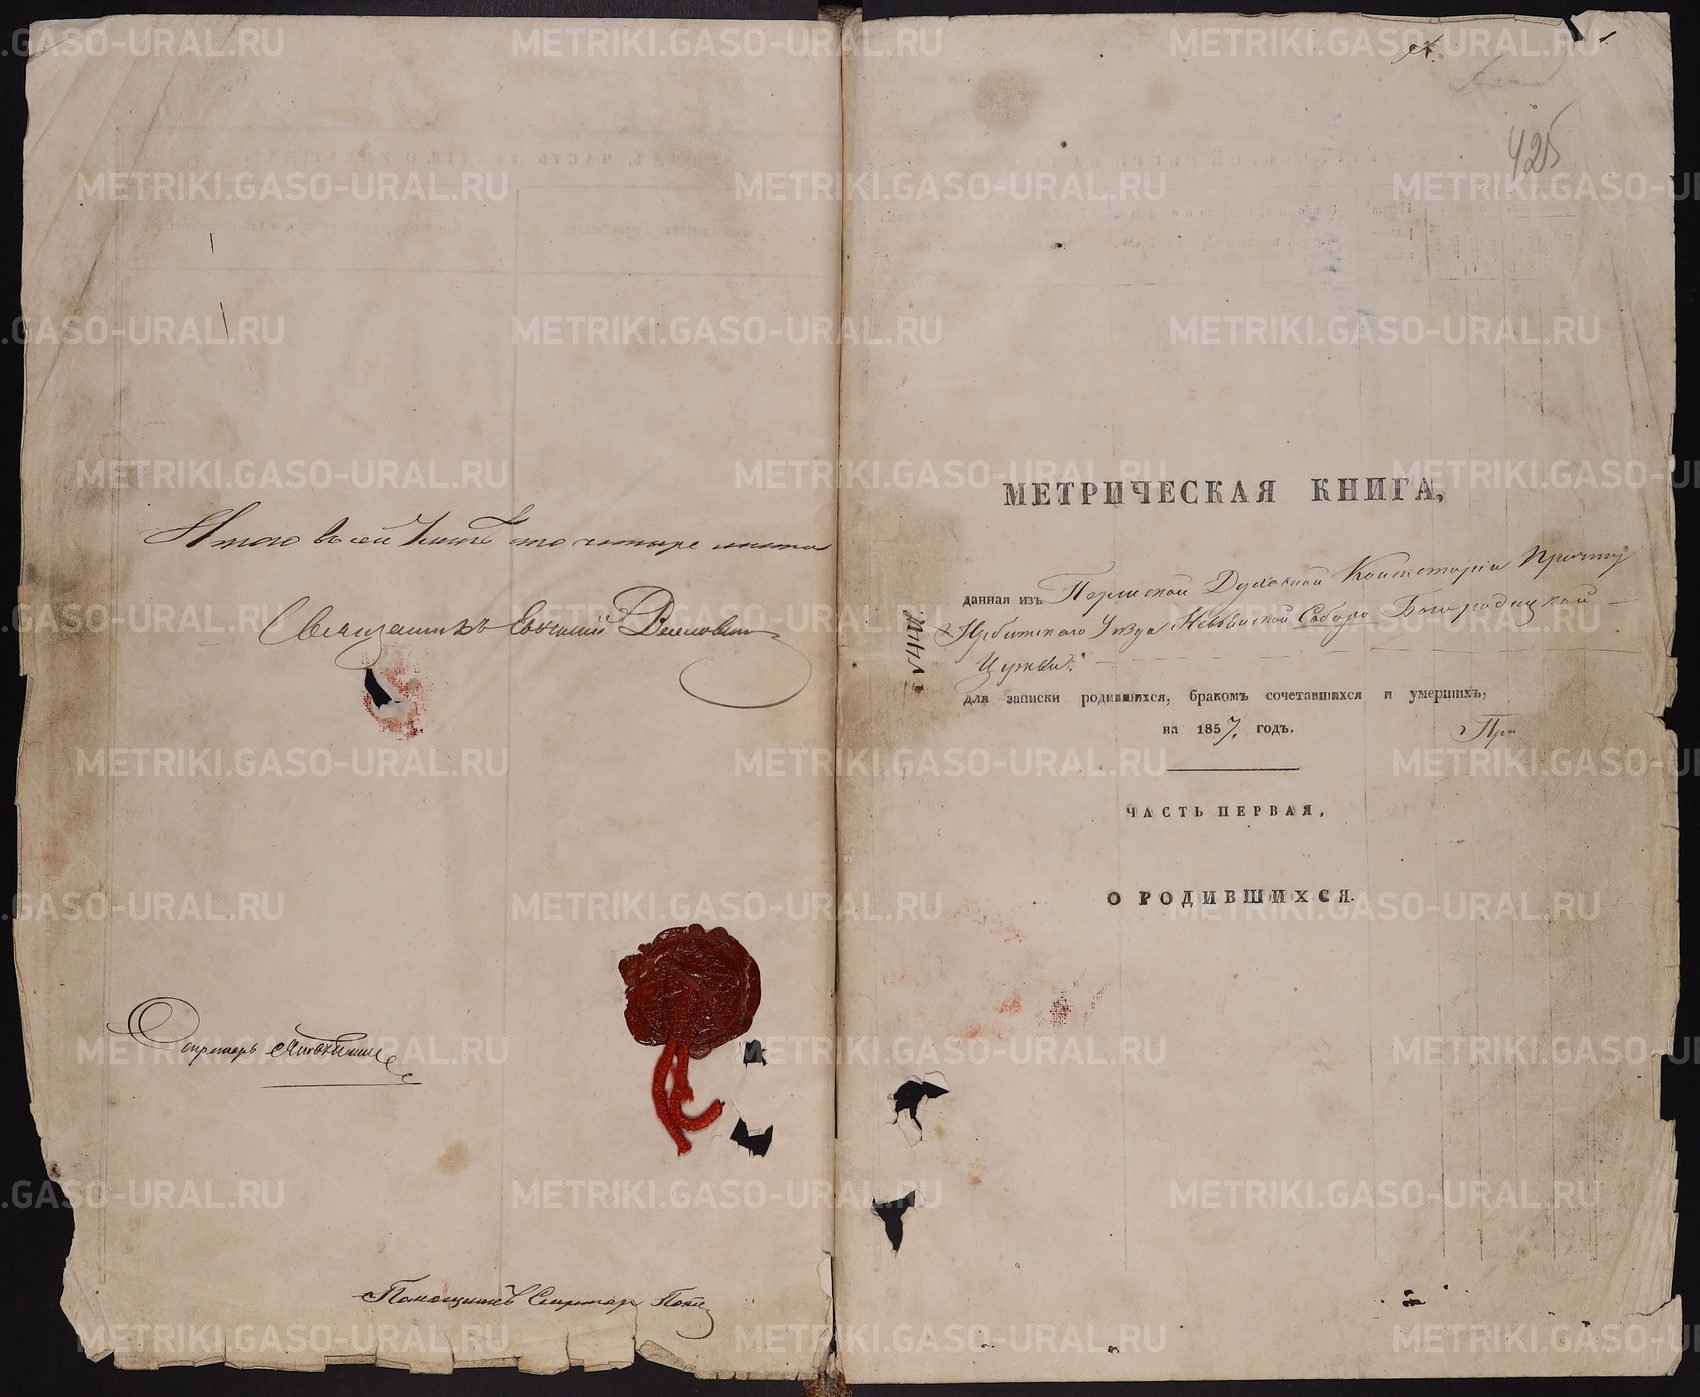 Итого въ сей книгѣ сто четыре листа
Священникъ Евгений
Секретарь
Помощникъ Секретаря
425
МЕТРИЧЕСКАЯ КНИГА,
данная изъ Пермской Духовной Консисторіи Причту
Ирбитскаго Уѣзда Невьянской Соборо Богородицкой
Церкви.
для записки родившихся, бракомъ сочетавшихся и умершихъ,
на 1857. годъ.
При
ЧАСТЬ ПЕРВАЯ,
О РОДИВШИХСЯ.
METRIKI.GASO-URAL.RU